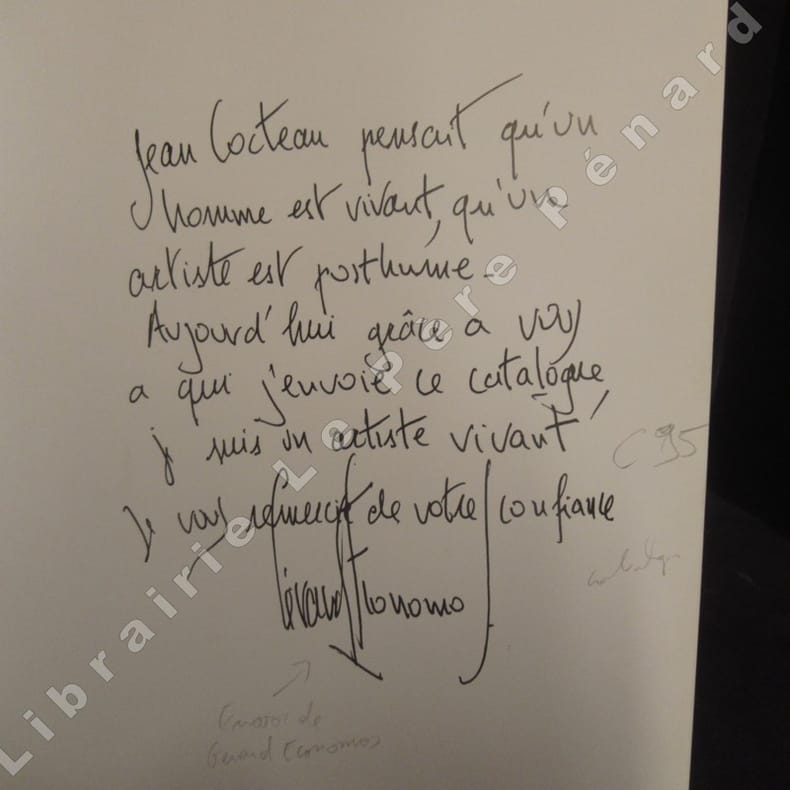 Jean Cocteau pensait qu'un
homme est vivant, qu'un
artiste est posthume -
Aujourd'hui grâce a vous
a qui j'envoie ce catalogue
je suis un artiste vivant
Je vous remercie de votre confiance
Gérard Economos
C 95
catalogue
Envoi de
Gérard Economos
Librairie Le Père Pénard